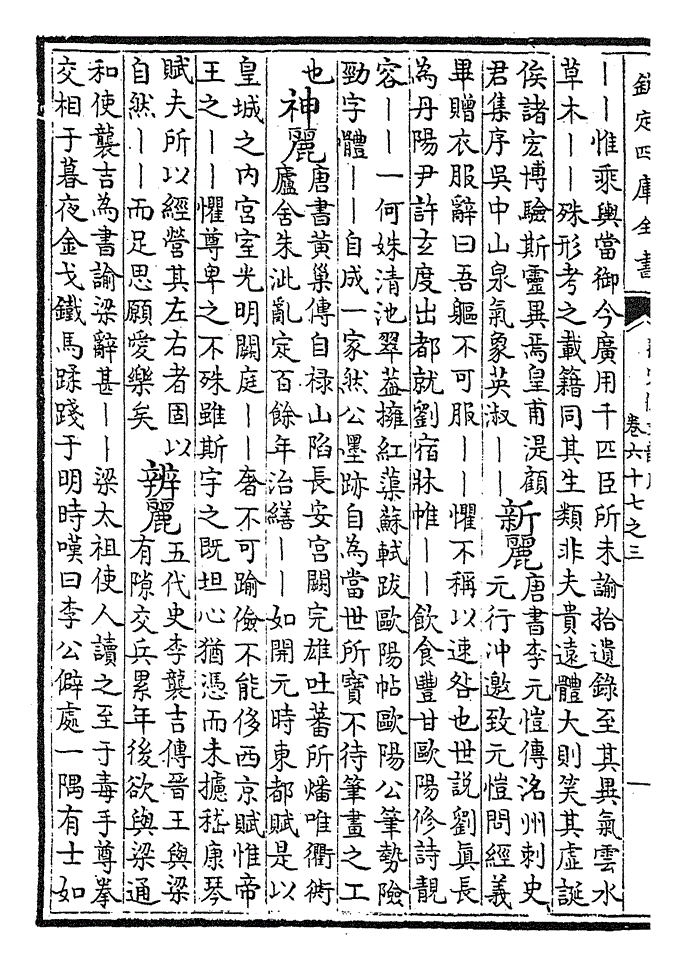 欽定四庫全書
卷六十七之三
——惟乗輿當御今廣用千匹臣所未諭拾遺錄至其異氣雲水
草木——殊形考之載籍同其生類非夫貴遠體大則笑其虛誕
俟諸宏博驗斯靈異焉皇甫湜顧
君集序吳中山泉氣象英淑——
新麗
唐書李元愷傳洺州刺史
元行沖邀致元愷問經義
畢贈衣服辭曰吾軀不可服——懼不稱以速咎也世說劉真長
為丹陽尹許玄度出都就劉宿牀帷——飲食豐甘歐陽修詩靚
容——一何姝清池翠葢擁紅蕖蘇軾跋歐陽帖歐陽公筆勢險
勁字體——自成一家然公墨跡自為當世所寶不待筆畫之工
也
神麗
唐書黃巢傳自祿山陷長安宮闕完雄吐蕃所燔唯衢衖
廬舍朱泚亂定百餘年治繕——如開元時東都賦是以
皇城之內宮室光明闕庭——奢不可踰儉不能侈西京賦惟帝
王之——懼尊卑之不殊雖斯宇之既坦心猶憑而未攄嵇康琴
賦夫所以經營其左右者固以
自然——而足思願愛樂矣
辨麗
五代史李襲吉傳晉王與梁
有隙交兵累年後欲與梁通
和使襲吉為書諭梁辭甚——梁太祖使人讀之至于毒手尊拳
交相于暮夜金戈鐵馬蹂踐于明時嘆曰李公僻處一隅有士如